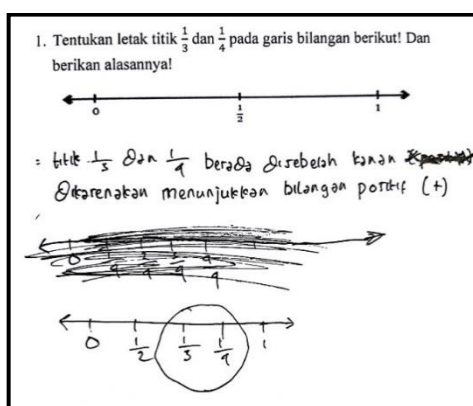 1. Tentukan letak titik 1/3 dan 1/4 pada garis bilangan berikut! Dan
berikan alasannya!
0 1/2 1
: titik 1/3 Dan 1/4 berada disebelah kanan
Dikarenakan menunjukkan bilangan positif (+)
0 1/2 1/3 1/4 1